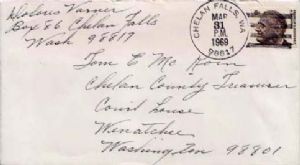 Dolores Varner
Box 76 Chelan Falls
Wash 98817
CHELAN FALLS, WA
MAR
31
P.M.
1969
98817
Tom E Mc Koin
Chelan County Treasurer
Court house
Wenatchee
Washington 98801